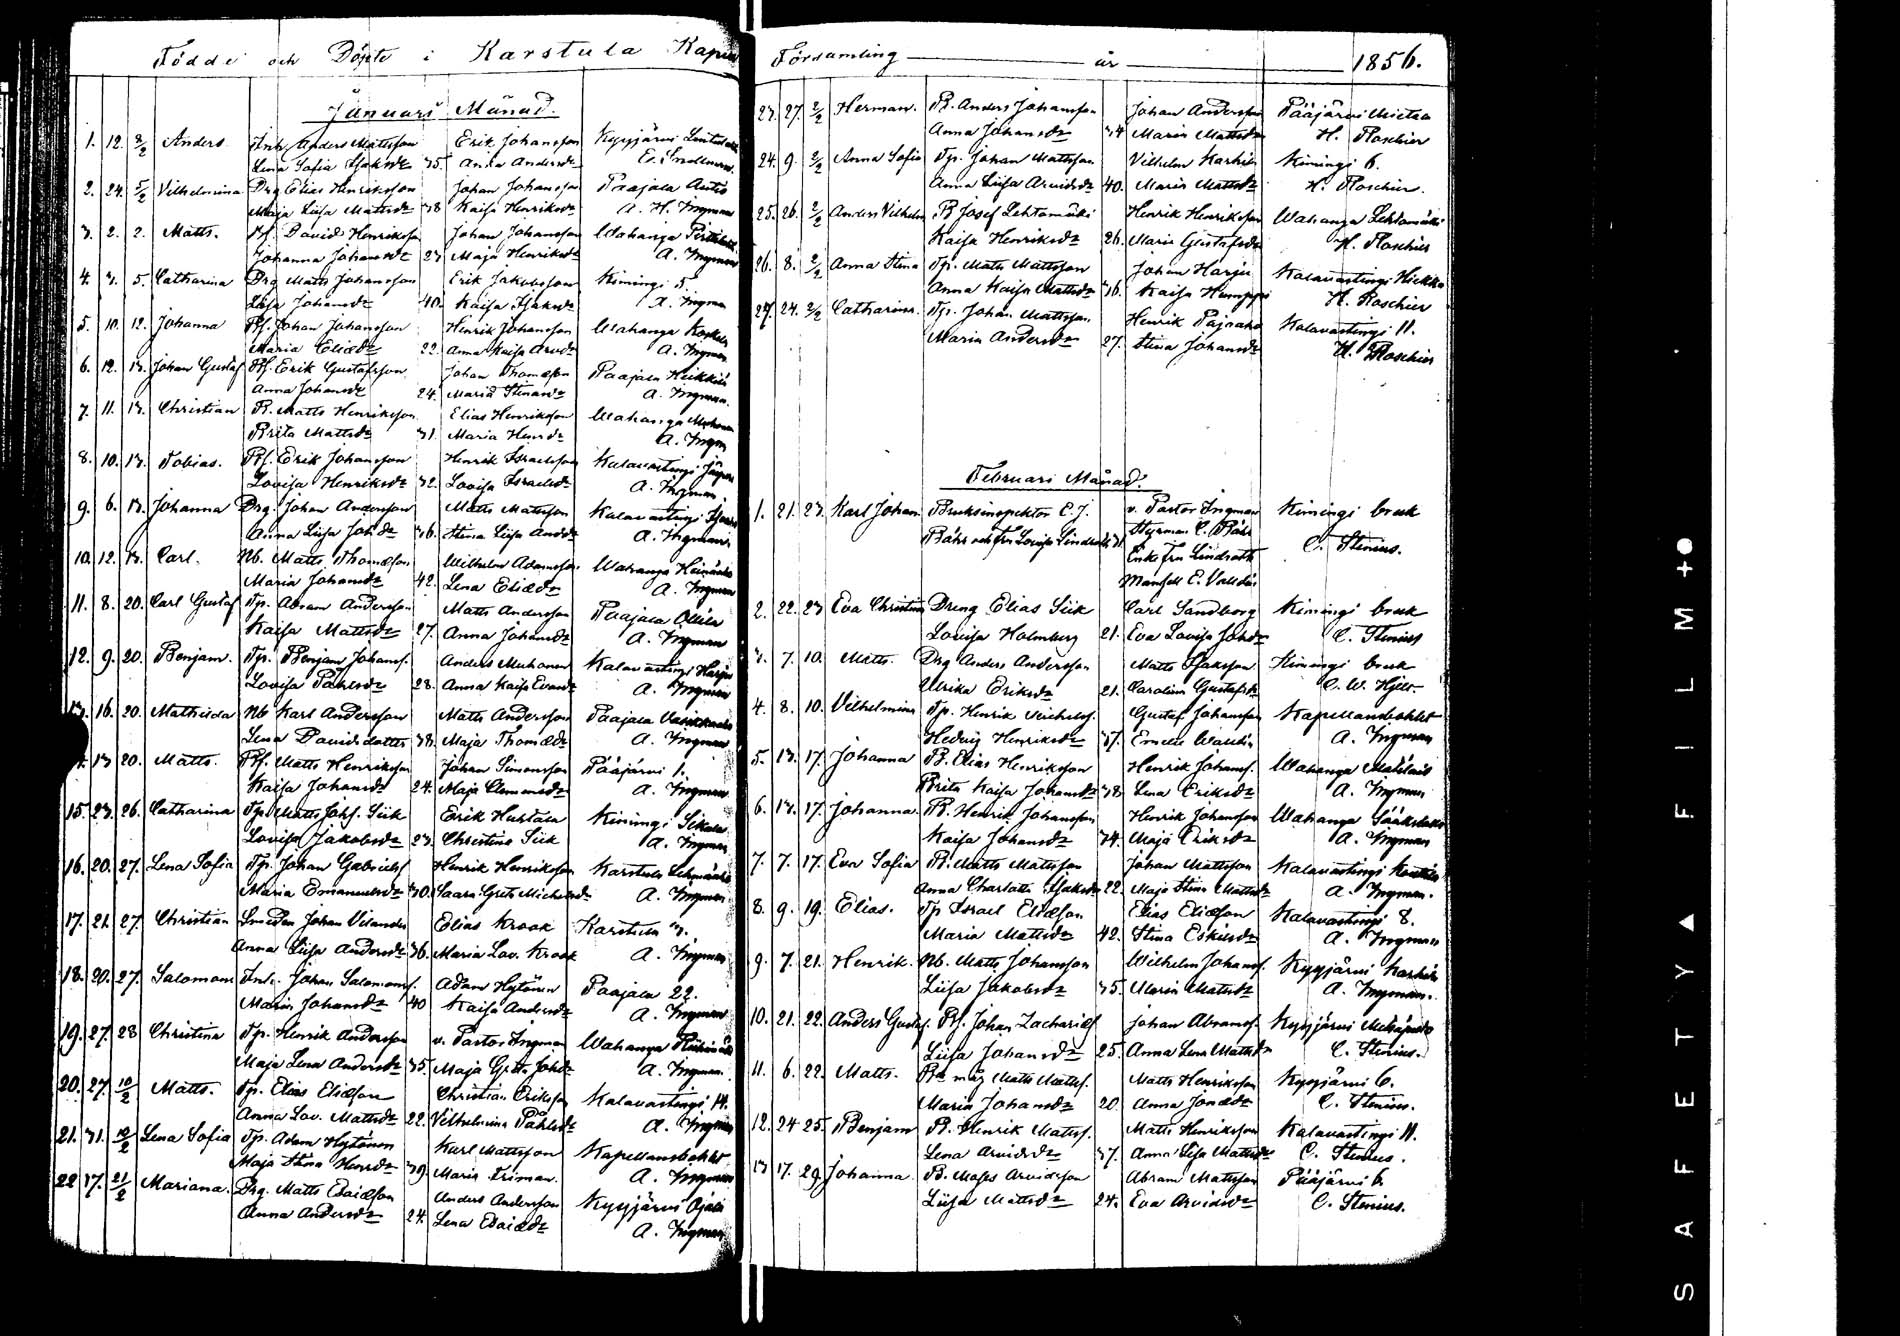 Födde och Döpte i Karstula Kapell
Januari Månad.
1. 12. 3/2 Anders. Anders Mattsson Erik Johansson Kyyjärvi
Lena Sofia Isaksdr 35. Anna Andersdr
2. 24. 5/2 Vilhelmina Drg Elias Henriksson Johan Johansson Paajala Antio
Maja Liisa Mattsdr 38 Kaisa Henriksdr A. H. Ingman
3. 2. 2. Matts. David Henriksson Johan Johansson Wahanga
Johanna Johansdr 23 Maja Henriksdr A. Ingman
4. 3. 5. Catharina Drg Matts Johansson Erik Jakobsson Kiminge 5.
Liisa Johansdr 40. Kaisa Isaksdr A. Ingman
5. 10. 12. Johanna Bf. Johan Johansson Henrik Johansson Wahanga
Maria Eliædr 22. Anna Kaisa Arvdr A. Ingman
6. 12. 13. Johan Gustaf Bf. Erik Gustafsson Johan Thomasson Paajala Heikkilä
Anna Johansdr 24. Maria A. Ingman.
7. 11. 13. Christian B. Matts Henriksson Elias Henriksson Wahanga
Brita Mattsdr 31. Maria Henrdr A. Ingm
8. 10. 13. Tobias. Bf. Erik Johansson Henrik Israelsson Kalavastinge
Lovisa Henriksdr 32. Lovisa Israelsdr A. Ingman
9. 6. 13. Johanna Drg. Johan Andersson Matts Mattsson Kalavastinge
Anna Liisa Johdr 36. Stina Liisa Anddr A. Ingman
10. 12. 13. Carl. Nb. Matts Thomasson Wilhelm Adamsson Wahanga
Maria Johansdr 42. Lena Eliædr A. Ingman
11. 8. 20. Carl Gustaf Tp. Abram Andersson Matts Andersson Paajala
Kaisa Mattsdr 27. Anna Johansdr A. Ingman
12. 9. 20. Benjam. Tp. Benjam Johansf. Anders Muhonen Kalavastinge Harju
Lovisa Påhlsdr 28. Anna Kaisa A. Ingman
13. 16. 20. Mathilda Nb Karl Andersson Matts Andersson Paajala
Lena Davidsdotter 38. Maja Thomædr A. Ingman
13 20. Matts. Bf. Matts Henriksson Johan Simonsson Pääjärvi 1.
Kaisa Johansdr 24. Maja Clemensdr A. Ingman
15. 23. 26. Catharina Tp Matts Johsf. Siik Erik Kiminge
Lovisa Jakobsdr 23 Christina Siik A. Ingman
16. 20. 27. Lena Sofia Tp. Johan Gabrielsf Henrik Henriksson Karstula
Maria Emanuelsdr 30. Saara Greta Michelsdr A. Ingman
17. 21. 27. Christian Smeden Johan Vilander Elias Krook Karstula 3.
Anna Liisa Andersdr 36. Maria Lov. Krook A. Ingman
18. 20. 27. Salomon Johan Salomonsf. Adam Hytönen Paajala 22.
Maria Johansdr 40 Kaisa Andersdr A. Ingman
19. 27. 28 Christina Tp. Henrik Andersson v. Pastor Ingman Wahanga
Maja Lena Andersdr 35. Maja Greta Johdr A. Ingman.
20. 27. 10/2 Matts. Tp. Elias Eliæson Christian Eriksson Kalavastinge 14.
Anna Lov. Mattsdr 22. Vilhelmina Påhlsdr A. Ingman
21. 31. 10/2 Lena Sofia Tp. Adam Hytönen Karl Mattsson Kapellansbohlet
Maja Stina Henrdr 39. Maria Friman. A. Ingman
22 37. 21/2 Mariana. Drg. Matts Esaiæson Anders Andersson Kyyjärvi Ojala
Anna Andersdr 24. Lena Esaiædr A. Ingman
Församling år 1856.
23. 27. 2/2 Herman. B. Anders Johansson Johan Andersson Pääjärvi
Anna Johansdr 34 Maria Mattsdr H. Roschier
24. 9. 2/2 Anna Sofia Tp. Johan Mattsson Vilhelm Kiminge 6.
Anna Liisa Arvidsdr 40. Maria Mattsdr H. Roschier.
25. 26. 2/2 Anders Vilhelm B Josef Lehtomäki Henrik Henriksson Wahanga Lehtomäki
Kaisa Henriksdr 26. Maria Gustafsdr H. Roschier
26. 8. 2/2 Anna Stina Tp. Matts Mattsson Johan Harju Kalavastinge Hiekka
Anna Kaisa Mattsdr 36. Kaisa Humppi H. Roschier
27. 24. 2/2 Catharina. Tp. Johan Mattsson Henrik Kalavastinge 11.
Maria Andersdr 27. Stina Johansdr H. Roschier
Februari Månad.
1. 21. 23. Karl Johan Bruksinspektor C. J. v. Pastor Ingman Kiminge bruk
Bähr och Fru Lovisa Lindroth 31 Styrman C. Bähr C. Stenius.
Enke Fru Lindroth
Mamsell E.
2. 22. 23 Eva Christina Dreng Elias Siik Carl Sandborg Kiminge bruk
Lovisa Holmberg 21. Eva Lovisa Johdr C. Stenius
3. 7. 10. Matts. Drg Anders Andersson Matts Isaksson Kiminge bruk
Ulrika Eriksdr 21. Carolina Gustafsdr C. W. Hjelt
4. 8. 10. Vilhelmina Tp. Henrik Michelsf. Gustaf Johansson Kapellansbohlet
Hedvig Henriksdr 37. A. Ingman
5. 13. 17. Johanna B. Elias Henriksson Henrik Johansf. Wahanga
Brita Kaisa Johansdr 38 Lena Eriksdr A. Ingman
6. 13. 17. Johanna. B. Henrik Johansson Henrik Johansson Wahanga
Kaisa Johansdr 34. Maja Eriksdr A. Ingman
7. 7. 17. Eva Sofia B. Matts Mattsson Johan Mattsson Kalavastinge
Anna Charlotta Isaksdr 22. Maja Stina Mattsdr A. Ingman.
8. 9. 19. Elias. Tp Israel Eliæson Elias Eliæson Kalavastinge 8.
Maria Mattsdr 42. Stina Eskilsdr A. Ingman
9. 7. 21. Henrik. Nb. Matts Johansson Wilhelm Johansf. Kyyjärvi
Liisa Jakobsdr 35. Maria Mattsdr A. Ingman.
10. 21. 22. Anders Gustaf. Bf. Johan Zachariæf Johan Abramsf. Kyyjärvi
Liisa Johansdr 25. Anna Lena Mattsdr C. Stenius.
11. 6. 22. Matts. Matts Mattsf. Matts Henriksson Kyyjärvi 6.
Maria Johansdr 20. Anna Jonædr C. Stenius.
12. 24 25. Benjam B. Henrik Mattsf. Matts Henriksson Kalavastinge 11.
Lena Arvidsdr 37. Anna Lisa Mattsdr C. Stenius.
13 17. 29. Johanna. B. Moses Arvidsson Abram Mattsson Pääjärvi 6.
Liisa Mattsdr 24. Eva Arvidsdr C. Stenius.
SAFETY ▲ FILM +●